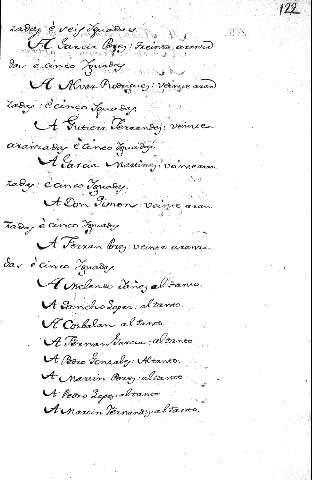 122
zadas è seis Iguadas
A Garcia Perez: treinta aranza
das è cinco Iguadas
A Alvar Rodriguez: veinte aran
zadas: è cinco Iguadas
A Gutierr Ferrandez: veinte
aranzadas è cinco Iguadas
A Garcia Martinez: veinte aran
zadas: è cinco Iguadas
A Don Simon: veinte aran
zadas è cinco Iguadas
A Ferran Perez: veinte aranza
das è cinco Iguadas
A Melendo Yañez al tanto.
A Sancho Lopez: al tanto
A Corbalan al tanto
A Fernan Garcia: al tanto
A Pedro Gonzalez: Al tanto.
A Martin Perez: al tanto
A Pedro Lopez: al tanto
A Martin Fernandez: al tanto.